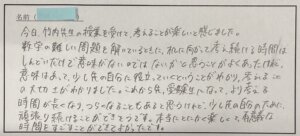 名前(
今日、竹内先生の授業を受けて、考えることが楽しいと感じました。
数学の難しい問題を解いているときに、私に向かって考え続ける時間は
しんどいだけで意味がないのではないかと思うことがよくあったけれど、
意味はあって、少し先の自分に役立っていくということがわかり、考えること
の大切さがわかりました。これから先、受験生になって、より考える
時間が長くなり、つらくなることもあると思うけれど、少し先の自分のために、
頑張り続けることができそうです。本当にとにかく楽しくて、有意義な
時間をすごすことができてよかったです。